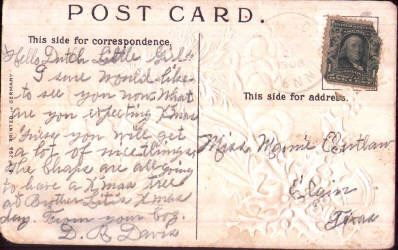 POST CARD.
This side for correspondence.
Hello Dutch Little Girl
I sure would like
to see you now. What
are you expecting Xmas
I guess you will get
a lot of nice things
we are all going
to have a Xmas tree
at Brother Xmas
day. From your boy.
D. R. Davis
PRINTED IN GERMANY
This side for address.
Miss Mamie Outlaw
Elgin
Texas